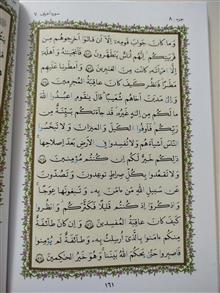 جزء ٨ سورة اعراف ٧
وَمَا كَانَ جَوَابَ قَوْمِهِ إِلَّا أَنْ قَالُوا أَخْرِجُوهُمْ مِنْ
قَرْيَتِكُمْ إِنَّهُمْ أُنَاسٌ يَتَطَهَّرُونَ ﴿٨٢﴾ فَأَنْجَيْنَاهُ وَأَهْلَهُ
إِلَّا امْرَأَتَهُ كَانَتْ مِنَ الْغَابِرِينَ ﴿٨٣﴾ وَأَمْطَرْنَا عَلَيْهِمْ
مَطَرًا فَانْظُرْ كَيْفَ كَانَ عَاقِبَةُ الْمُجْرِمِينَ ﴿٨٤﴾
وَإِلَىٰ مَدْيَنَ أَخَاهُمْ شُعَيْبًا قَالَ يَٰقَوْمِ اعْبُدُوا اللَّهَ
مَا لَكُمْ مِنْ إِلَٰهٍ غَيْرُهُ قَدْ جَاءَتْكُمْ بَيِّنَةٌ مِنْ
رَبِّكُمْ فَأَوْفُوا الْكَيْلَ وَالْمِيزَانَ وَلَا تَبْخَسُوا
النَّاسَ أَشْيَاءَهُمْ وَلَا تُفْسِدُوا فِي الْأَرْضِ بَعْدَ إِصْلَاحِهَا
ذَٰلِكُمْ خَيْرٌ لَكُمْ إِنْ كُنْتُمْ مُؤْمِنِينَ ﴿٨٥﴾
وَلَا تَقْعُدُوا بِكُلِّ صِرَاطٍ تُوعِدُونَ وَتَصُدُّونَ
عَنْ سَبِيلِ اللَّهِ مَنْ آمَنَ بِهِ وَتَبْغُونَهَا عِوَجًا
وَاذْكُرُوا إِذْ كُنْتُمْ قَلِيلًا فَكَثَّرَكُمْ وَانْظُرُوا
كَيْفَ كَانَ عَاقِبَةُ الْمُفْسِدِينَ ﴿٨٦﴾ وَإِنْ كَانَ طَائِفَةٌ
مِنْكُمْ آمَنُوا بِالَّذِي أُرْسِلْتُ بِهِ وَطَائِفَةٌ لَمْ يُؤْمِنُوا
فَاصْبِرُوا حَتَّىٰ يَحْكُمَ اللَّهُ بَيْنَنَا وَهُوَ خَيْرُ الْحَاكِمِينَ ﴿٨٧﴾
١٦١